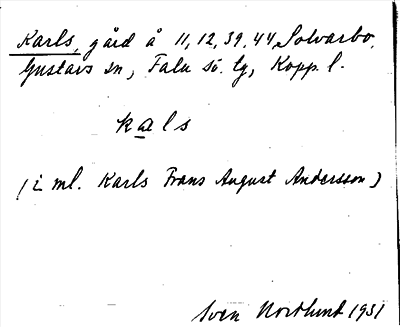 Karls, gård å 11, 12, 39, 44 Solvarbo,
Gustavs sn, Falu sö. tg, Kopp. l.
kals
(i ml. Karls Frans August Andersson)
Sven Norlund 1931